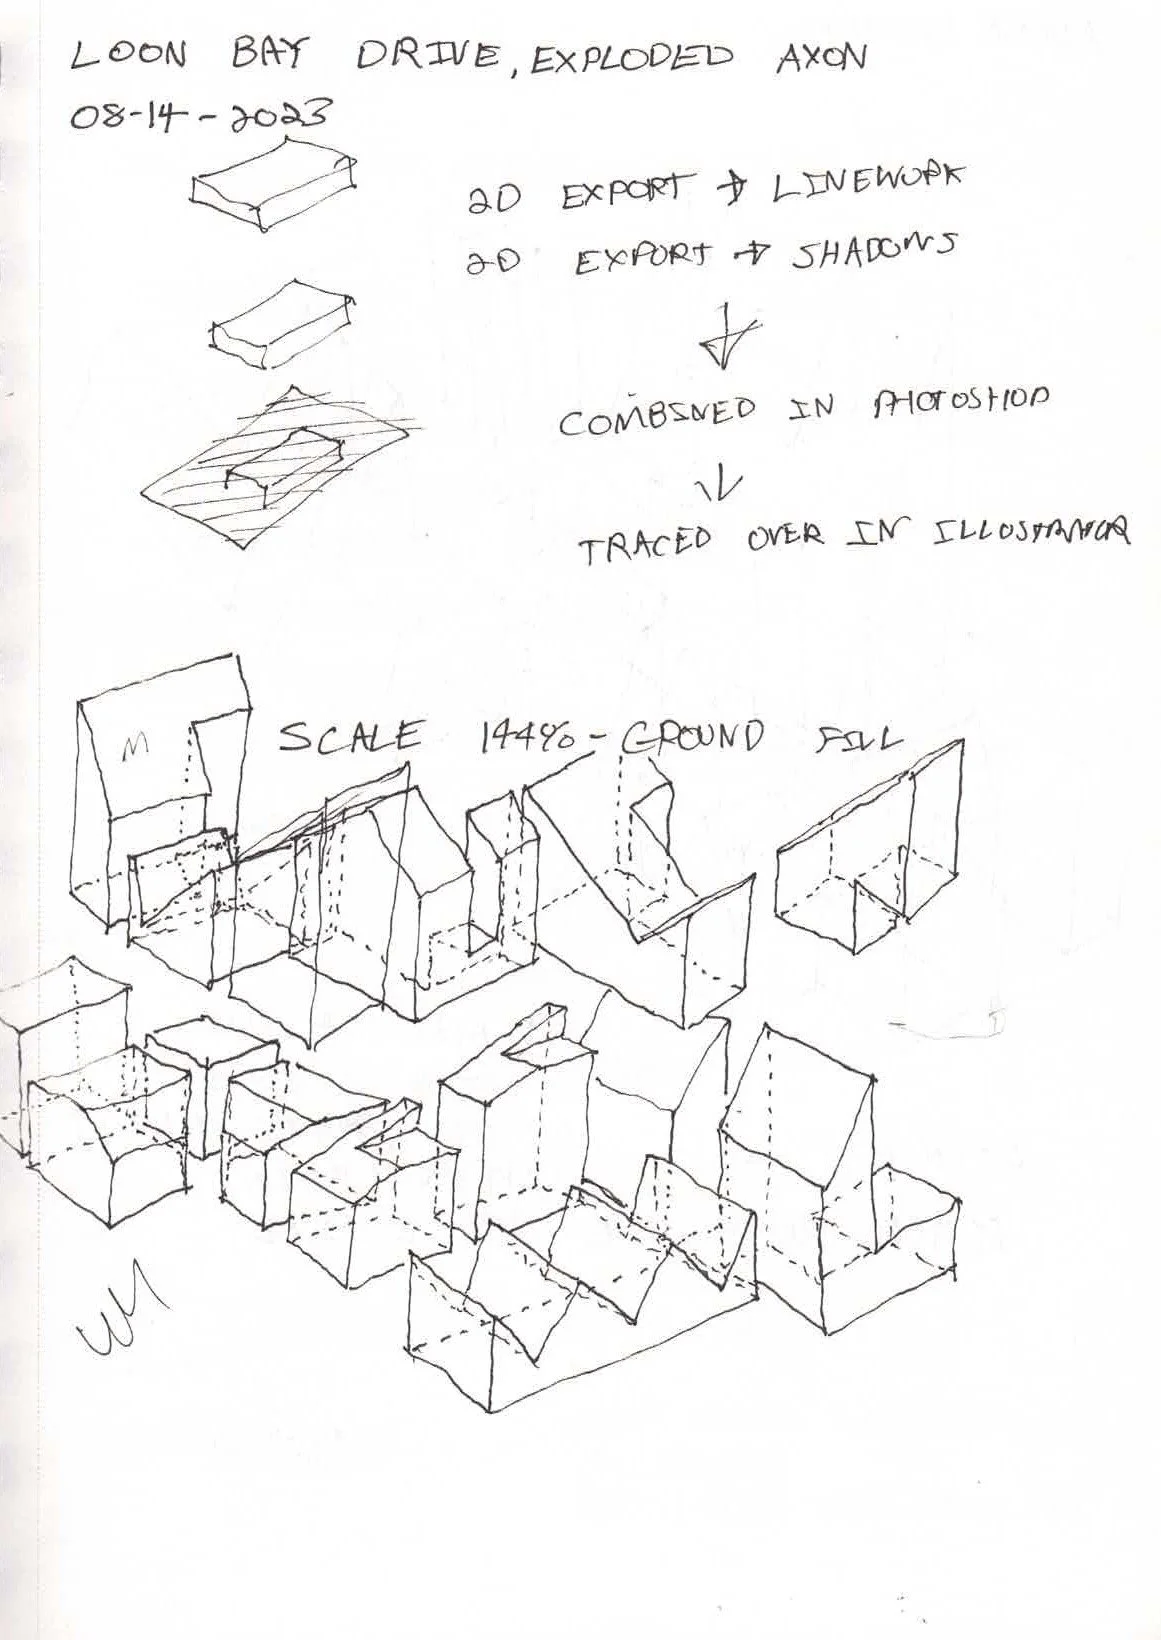 LOON BAY DRIVE, EXPLODED AXON
08-14-2023
2D EXPORT → LINEWORK
2D EXPORT → SHADOWS
↓
COMBINED IN PHOTOSHOP
↓
TRACED OVER IN ILLUSTRATOR
SCALE 144% - GROUND FILL
M